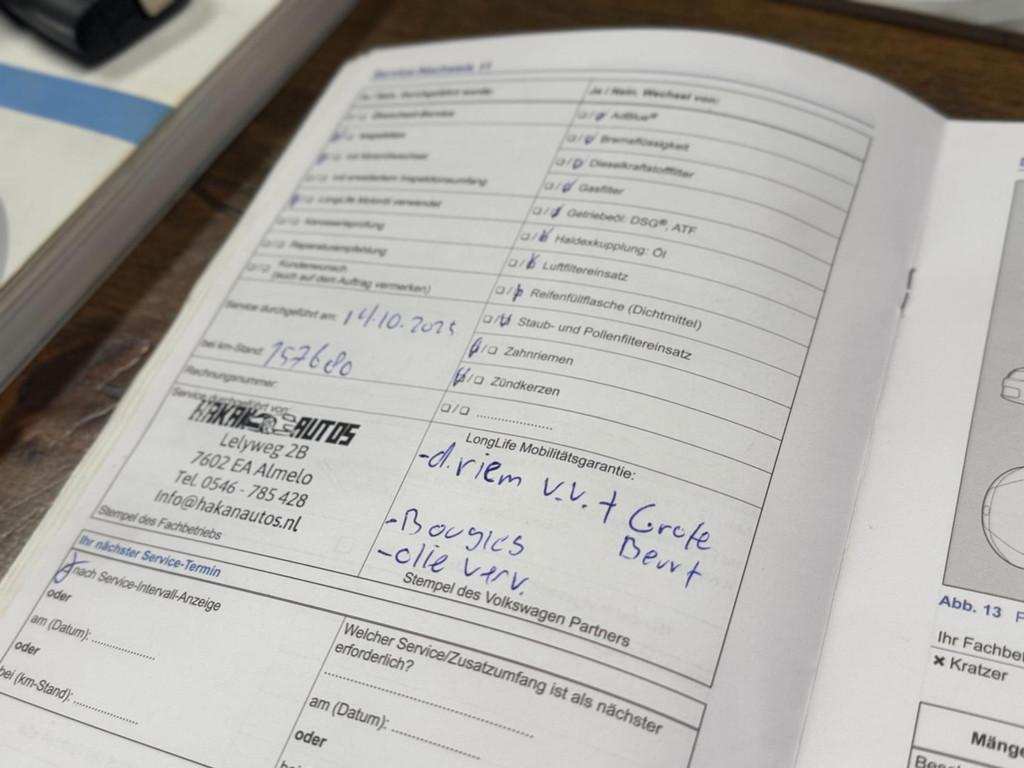 Service-Nachweis 11
Ja / Nein. Durchgeführt wurde:
Inspektion
mit Motorölwechsel
mit erweitertem Inspektionsumfang
LongLife Motoröl verwendet
Karosserieprüfung
Reparaturempfehlung
Kundenwunsch
(auch auf dem Auftrag vermerken)
Service durchgeführt am: 14.10.2025
bei km-Stand: 157680
Rechnungsnummer:
Service durchgeführt von:
HAKAN AUTOS
Lelyweg 2B
7602 EA Almelo
Tel. 0546 - 785 428
Info@hakanautos.nl
Stempel des Fachbetriebs
Ja / Nein. Wechsel von:
AdBlue®
Bremsflüssigkeit
Dieselkraftstofffilter
Gasfilter
Getriebeöl: DSG®, ATF
Haldexkupplung: Öl
Luftfiltereinsatz
Reifenfüllflasche (Dichtmittel)
Staub- und Pollenfiltereinsatz
Zahnriemen
Zündkerzen
....................
LongLife Mobilitätsgarantie:
-d.riem v.v. + Grote
Beurt
-Bougies
-olie verv.
Stempel des Volkswagen Partners
Ihr nächster Service-Termin
nach Service-Intervall-Anzeige
oder
am (Datum): ................
oder
bei (km-Stand): ................
Welcher Service/Zusatzumfang ist als nächster
erforderlich?
am (Datum): ................
oder
Abb. 13
Ihr Fachbet
× Kratzer
Mänge